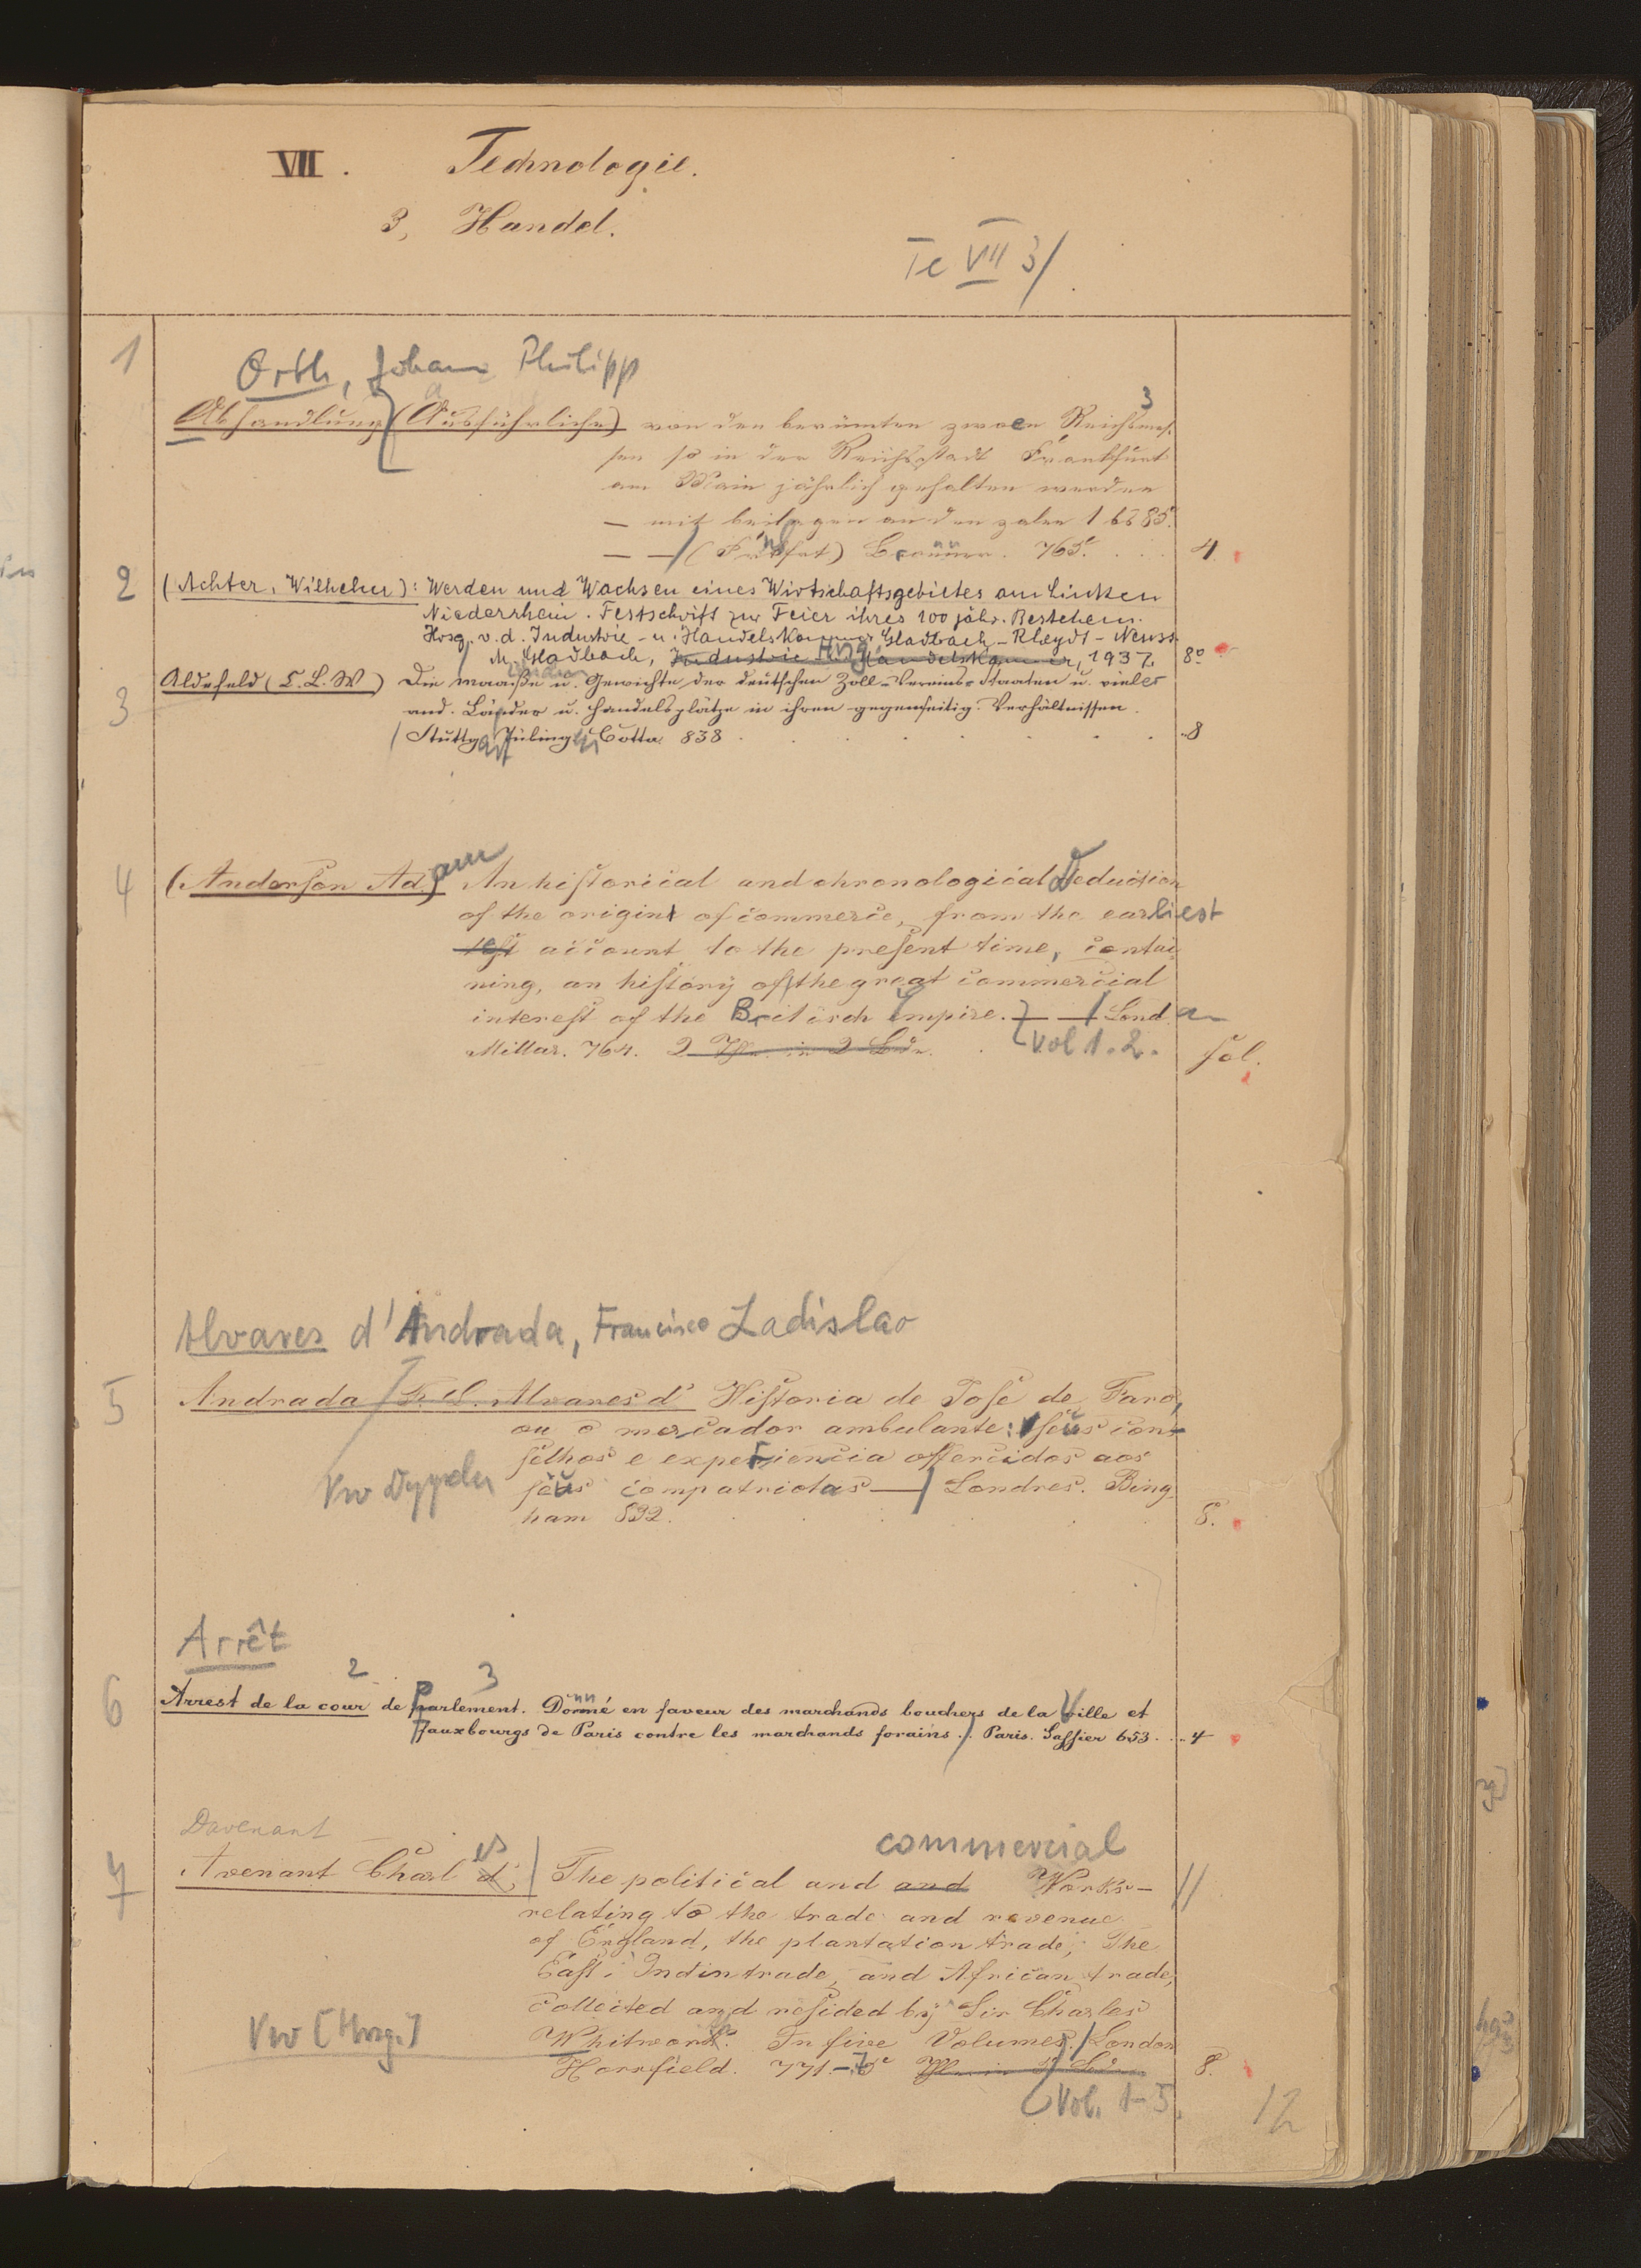 VII. Technologie.
3, Handel.
Te VII 3/
1
Orth, Johann Philipp
3
Abhandlung (Ausführliche) von den berümten zwoen Reichsmes-
sen so in der Reichsstadt Frankfurt
am Main jährlich gehalten werden
— mit beilagen an den zalen 1 bis 85.
— — / (Frkfrt) Brönner. 765. 4.
2 (Achter, Wilhelm): Werden und Wachsen eines Wirtschaftsgebietes am Linken
Niederrhein. Festschrift zur Feier ihres 100 jähr. Bestehens.
Hrsg. v. d. Industrie- u. Handelskammer Gladbach-Rheydt-Neuss.
M. Gladbach, Industrie Handelskammer, 1937. 8°
3 Aldefeld (C. L. W) Die maaße u. Gewichte der deutschen Zoll-Vereins-Staaten u. vieler
and. Länder u. Handelsplätze in ihren gegenseitig. Verhältnissen.
/ Stuttgart Tübing Cotta. 838 8
4 (Anderson Adam) An historical and chronological Deduction
of the origin of commerce, from the earliest
account to the present time, contai-
ning, an history of the great commercial
interest of the Britisch Empire. — / London
Millar. 764. 2 Thle in 2 Bdn. Vol 1. 2. fol.
Alvares d'Andrada, Francisco Ladislao
5 Andrada / F. L. Alvares d' Historia de Jose de Faro,
ou o mercador ambulante: seus con-
selhos e experiencia offercidos aos
Vw
seus compatriotas — / Londres. Bing
ham 832. 8.
Arrêt
2 3
6 Arrest de la cour de Parlement. Donné en faveur des marchands bouchers de la Ville et
Fauxbourgs de Paris contre les marchands forains. / Paris. Sassier 653. 4
Davenant commercial
7 Avenant Charles d', / The political and and Works— //
relating to the trade and revenue
of England, the plantation trade, The
East. Indin trade, and African trade,
collected and resided by Sir Charles
Vw [Hrsg.]
Whitworth. In five Volumes. / London
Horsfield. 771. 8.
Vol. 1-5.
12